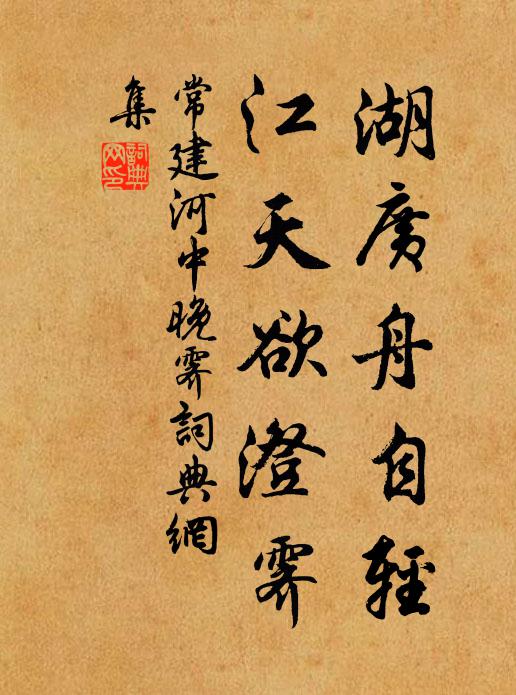 湖廣舟自輕
江天欲澄霽
常建河中晚霽詞典網
集
詞典
网印